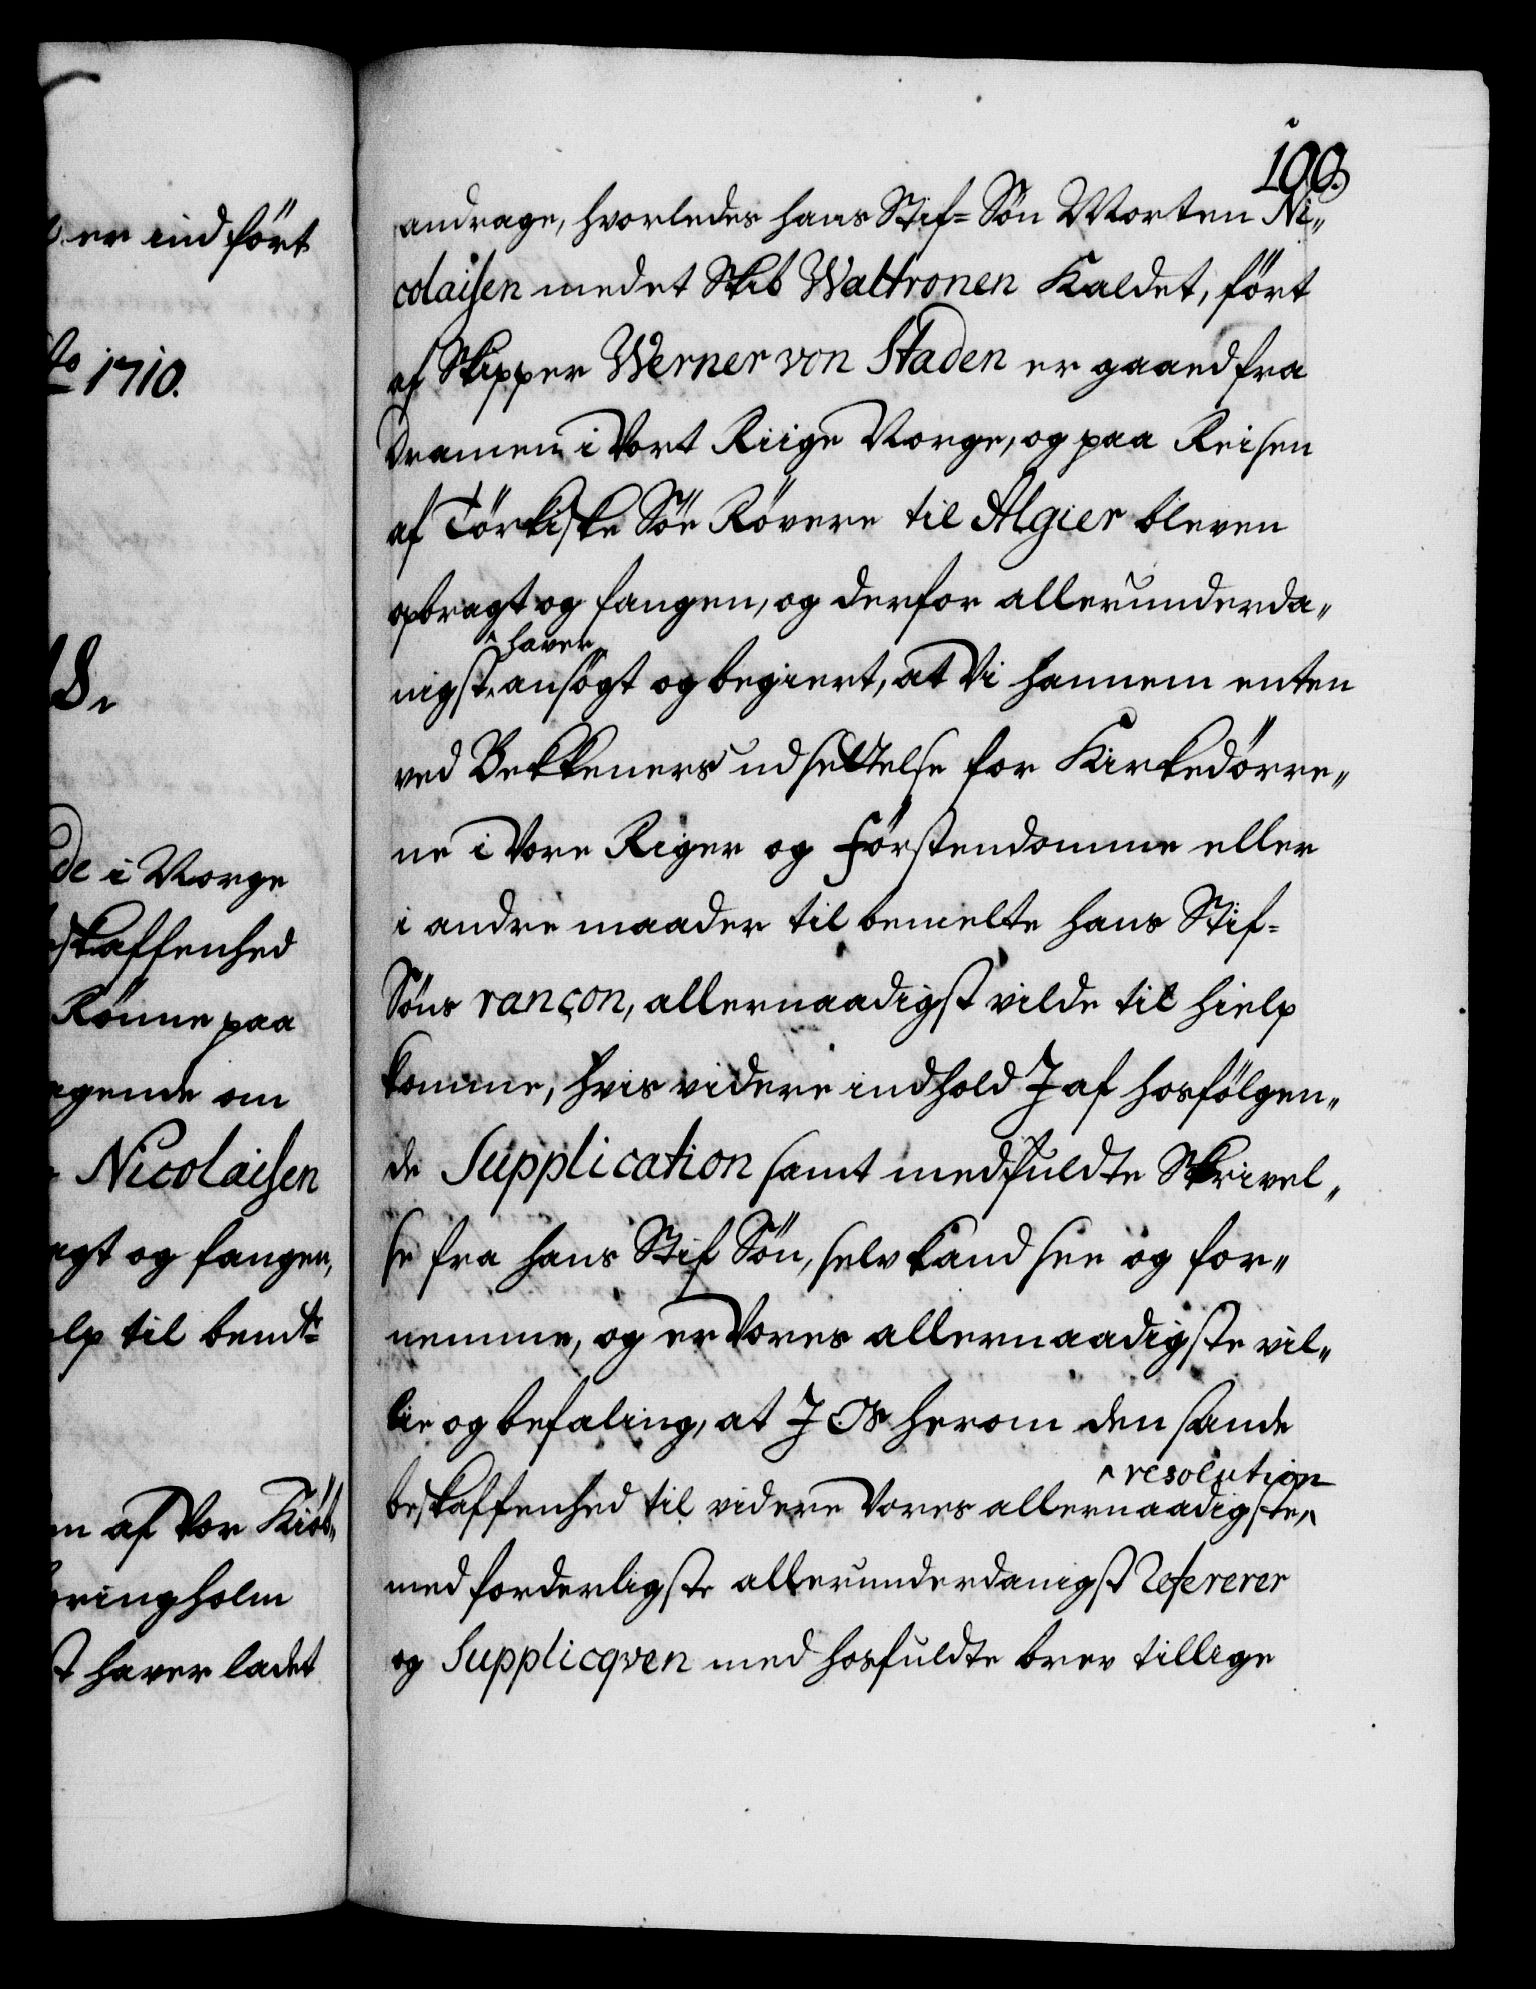 er indført
to 1710.
8.
de i Norge
skaffenhed
Rönne paa
gende om
Nicolaisen
agt og fangen,
elp til bemte
en af Vor Kiöb„
ringholm
st haver ladet
100.
andrage, hvorledes hans Stif= Søn Morten Ni„
colaisen med et Skib Waltronen Kaldet, ført
af Skipper Werner von Staden er gaaed fra
Dramen i Vort Riige Norge, og paa Reisen
af Törkiske Söe Røvere til Algier bleven
opbragt og fangen, og derfor allerunderda„
^ haver
nigst, ansøgt og begiert, at Vi hannem enten
ved Bekkeners udsettelse for Kirkedørre„
ne i Vore Riger og Förstendomme eller
i andre maader til bemelte hans Stif=
Søns rançon, allernaadigst vilde til hielp
komme, hvis videre indhold J af hosfølgen„
de Supplication samt medfuldte Skrivel„
se fra hans Stif Søn, selv kand see og for„
nemme, og er Vores allernaadigste vil„
lie og befaling, at J Os herom den sande
^ resolution
beskaffenhed til videre Vores allernaadigste,^
med forderligste allerunderdanigst refererer
og Supplicqven med hosfuldte brev tillige